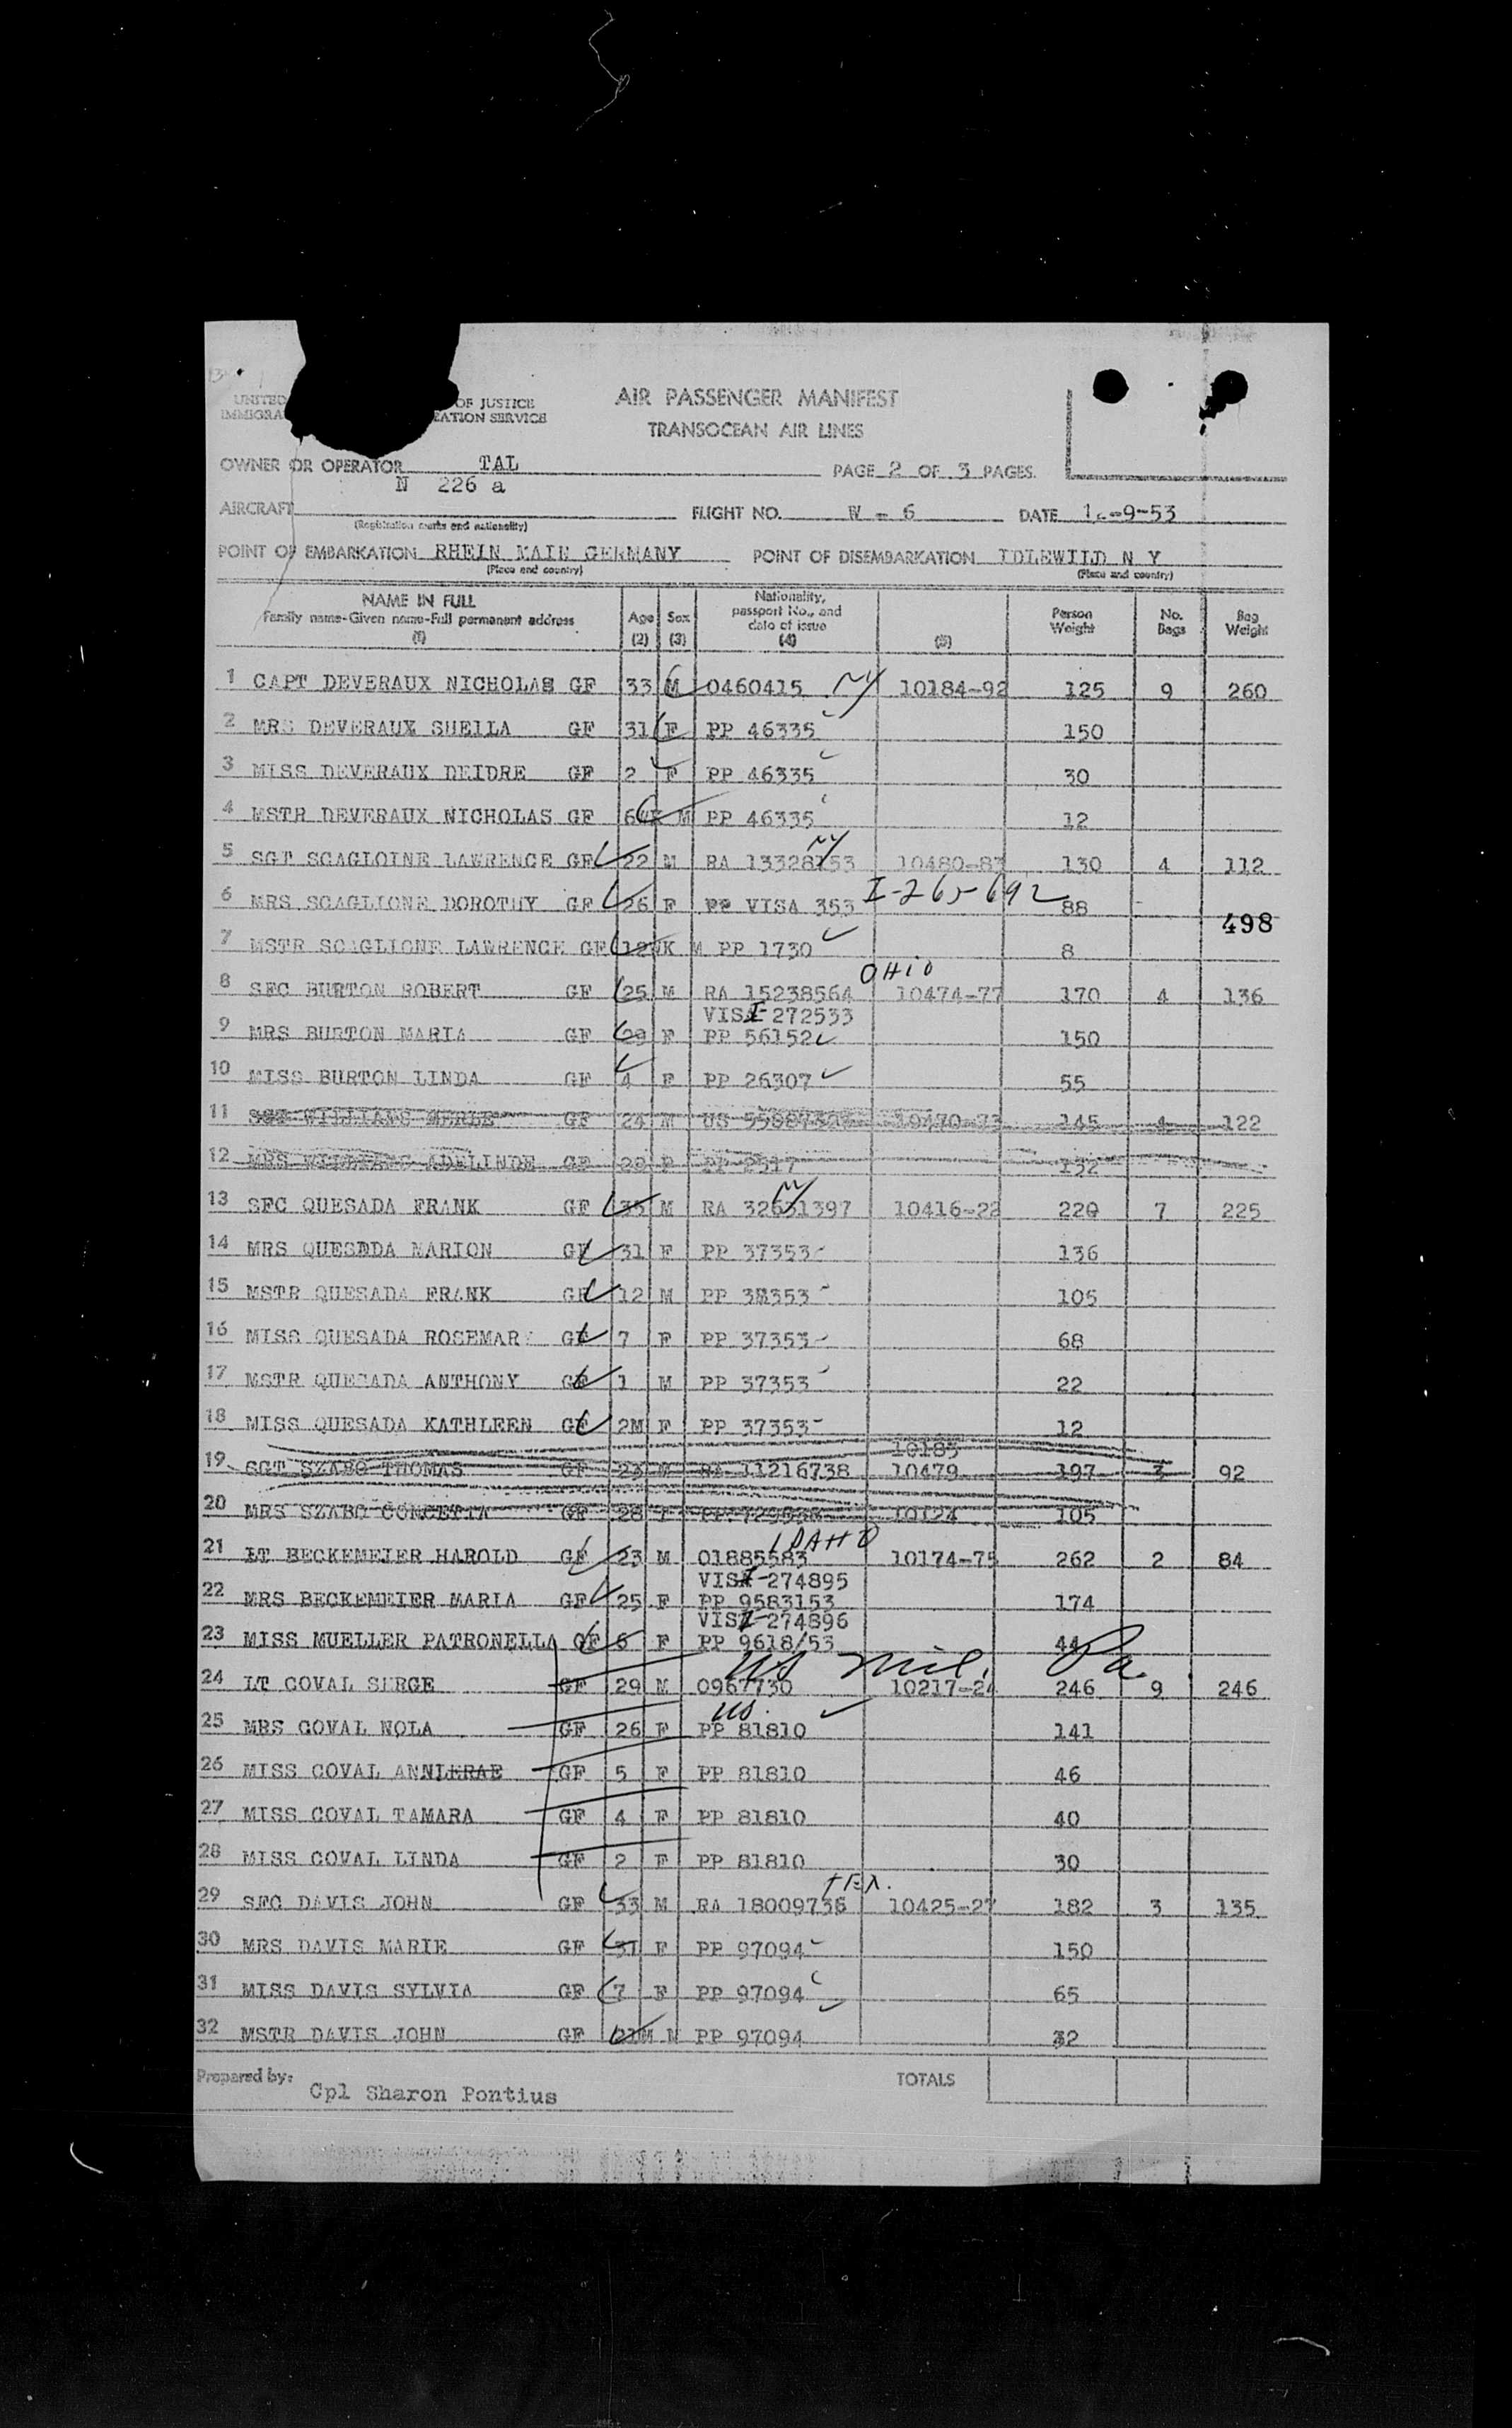 UNITED OF JUSTICE
IMMIGRA ATION SERVICE
AIR PASSENGER MANIFEST
TRANSOCEAN AIR LINES
OWNER OR OPERATOR TAL PAGE 2 OF 3 PAGES.
N 226 a
AIRCRAFT FLIGHT NO. W - 6 DATE -9-53
(Registration marks and nationality)
POINT OF EMBARKATION RHEIN MAIN GERMANY POINT OF DISEMBARKATION IDLEWILD N Y
(Place and country) (Place and country)
NAME IN FULL Age Sex Nationality, passport No., and date of issue Person Weight No. Bags Bag Weight
Family name-Given name-Full permanent address
(1) (2) (3) (4) (5)
1 CAPT DEVERAUX NICHOLAS GF 33 M 0460415 NY 10184-92 125 9 260
2 MRS DEVERAUX SHEILA GF 31 F PP 46335 150
3 MISS DEVERAUX DEIDRE GF 2 F PP 46335 30
4 MSTR DEVERAUX NICHOLAS GF 6 M PP 46335 12
NY
5 SGT SCAGLOINE LAWRENCE GF 22 M RA 13328153 10480-83 130 4 112
6 MRS SCAGLIONE DOROTHY GF 26 F PP VISA 353 I-265-692 88
498
7 MSTR SCAGLIONE LAWRENCE GF WK M PP 1730 8
OHIO
8 SFC BURTON ROBERT GF 25 M RA 15238564 10474-77 170 4 136
VISA I-272533
9 MRS BURTON MARIA GF 29 F PP 56152 150
10 MISS BURTON LINDA GF 4 F PP 26307 55
11 SGT WILLIAMS MERLE GF 24 M US 10470-73 145 4 122
12 MRS WILLIAMS ADELINDE GF F PP 2517 132
NY
13 SFC QUESADA FRANK GF 35 M RA 32631397 10416-22 220 7 225
14 MRS QUESDDA MARION GF 31 F PP 37353 136
15 MSTR QUESADA FRANK GF 12 M PP 353 105
16 MISS QUESADA ROSEMARY GF 7 F PP 37353 68
17 MSTR QUESADA ANTHONY GF 1 M PP 37353 22
18 MISS QUESADA KATHLEEN GF 2M F PP 37353 12
10185
19 SGT SZABO THOMAS GF 23 M RA 11216738 10479 197 3 92
20 MRS SZABO CONCETTA GF 28 F 10124 105
IDAHO
21 LT BECKEMEIER HAROLD GF 23 M 01885583 10174-75 262 2 84
VISA I-274895
22 MRS BECKEMEIER MARIA GF 25 F PP 9583153 174
VISA I-274896
23 MISS MUELLER PATRONELLA GF 6 F PP 9618/53 44
US Mil. Pa.
24 LT COVAL SERGE GF 29 M 0967730 10217-2 246 9 246
US.
25 MRS COVAL NOLA GF 26 F PP 81810 141
26 MISS COVAL ANNLERAE GF 5 F PP 81810 46
27 MISS COVAL TAMARA GF 4 F PP 81810 40
28 MISS COVAL LINDA GF 2 F PP 81810 30
TEX.
29 SFC DAVIS JOHN GF 33 M RA 18009736 10425-27 182 3 135
30 MRS DAVIS MARIE GF 31 F PP 97094 150
31 MISS DAVIS SYLVIA GF 7 F PP 97094 65
32 MSTR DAVIS JOHN GF M PP 97094 32
Prepared by: Cpl Sharon Pontius TOTALS